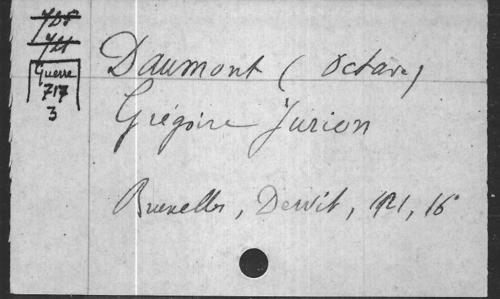 Guerre
717
3
Daumont (Octave)
Grégoire Jurion
Bruxelles, Dewit, 1921, 16°